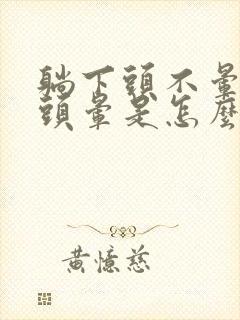 躺下頭不暈
頭暈是怎麼
黃憶慈